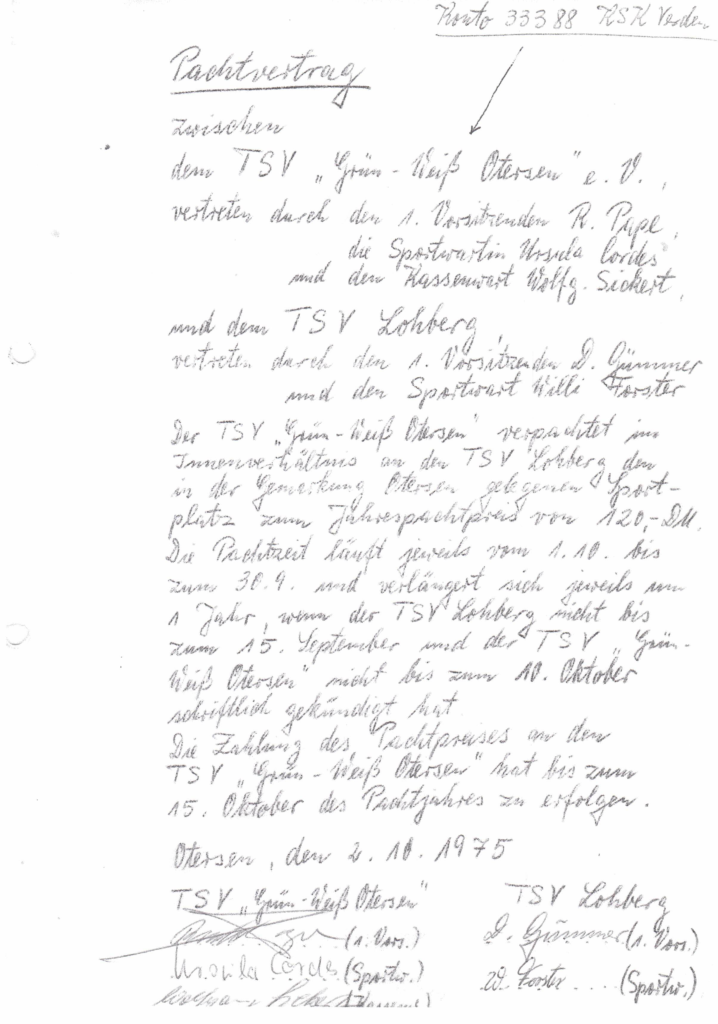 Konto 33388 KSK Verden
Pachtvertrag
zwischen
dem TSV „Grün-Weiß Otersen" e.V.,
vertreten durch den 1. Vorsitzenden R. Pape,
die Sportwartin Ursula Cordes
und den Kassenwart Wolfg. Sickert,
und dem TSV Lohberg,
vertreten durch den 1. Vorsitzenden D. Gümmer
und den Sportwart Willi Forster
Der TSV „Grün-Weiß Otersen" verpachtet im
Innenverhältnis an den TSV Lohberg den
in der Gemarkung Otersen gelegenen Sport-
platz zum Jahrespachtpreis von 120,- DM.
Die Pachtzeit läuft jeweils vom 1.10. bis
zum 30.9. und verlängert sich jeweils um
1 Jahr, wenn der TSV Lohberg nicht bis
zum 15. September und der TSV „Grün-
Weiß Otersen" nicht bis zum 10. Oktober
schriftlich gekündigt hat.
Die Zahlung des Pachtpreises an den
TSV „Grün-Weiß Otersen" hat bis zum
15. Oktober des Pachtjahres zu erfolgen.
Otersen, den 2.10.1975
TSV „Grün-Weiß Otersen"
(1. Vors.)
Ursula Cordes (Sportw.)
TSV Lohberg
D. Gümmer (1. Vors.)
W. Forster (Sportw.)